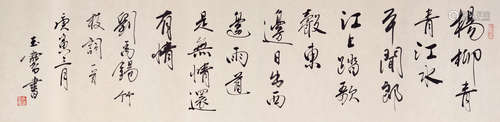 楊柳青
青江水
平聞郎
江上踏歌
聲東
邊日出西
邊雨道
是無情還
有情
劉禹錫竹
枝詞一首
庚寅三月
玉書